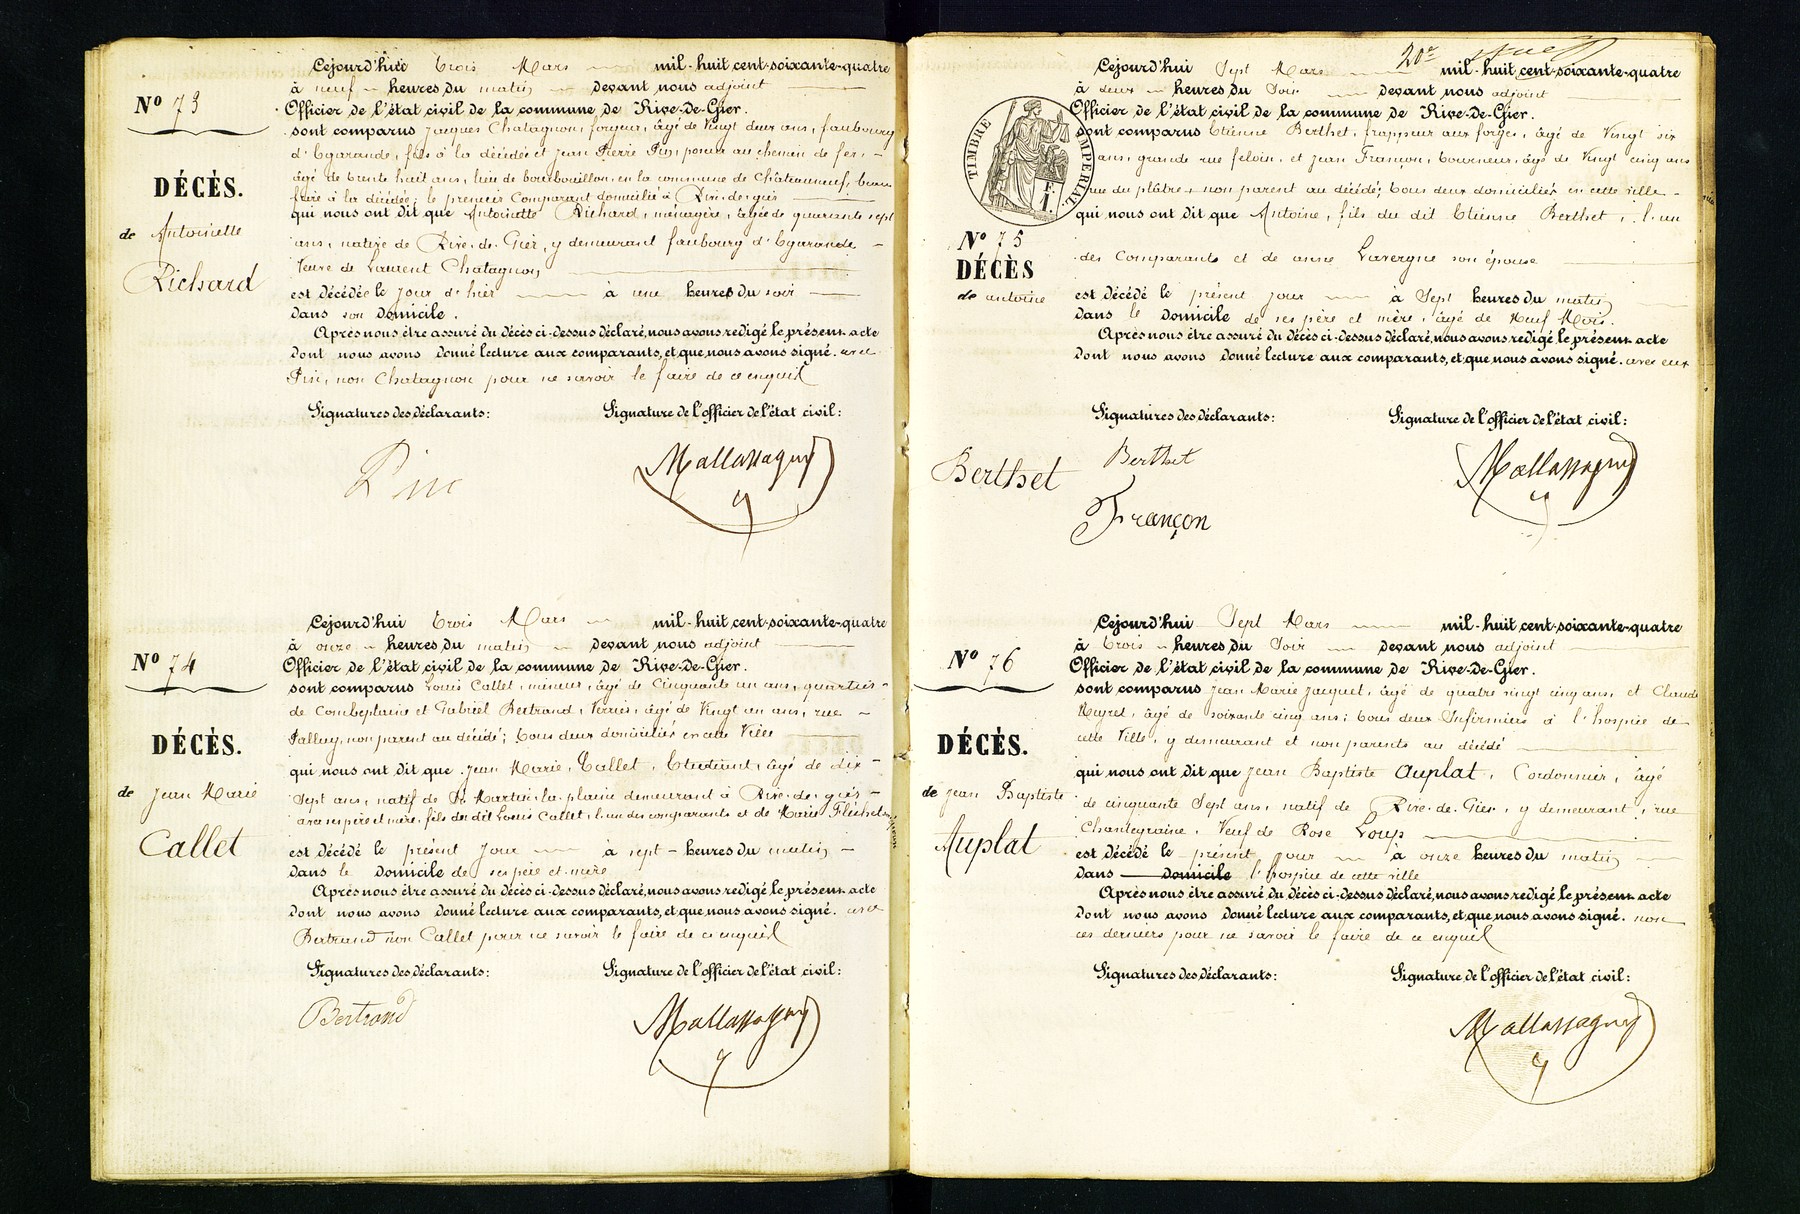 Cejourd'hui Trois Mars mil-huit cent-soixante-quatre
à neuf heures du matin devant nous adjoint
Officier de l'état civil de la commune de Rive-de-Gier.
sont comparus Jacques Chatagnon, forgeur, âgé de Vingt deux ans, faubourg
d'Egarande, fils à la décédée et Jean Pierre Pin, poseur au chemin de fer,
âgé de trente huit ans, lieu de bourbouillon, en la commune de Châteauneuf, beau
frère à la décédée; le premier Comparant domicilié à Rive-de-gier
qui nous ont dit que Antoinette Richard, ménagère, âgée de quarante sept
ans, native de Rive-de-Gier, y demeurant faubourg d'Egarande
Veuve de Laurent Chatagnon,
est décédée le jour d'hier à une heures du soir
dans son domicile.
Après nous être assuré du décès ci-dessus déclaré, nous avons redigé le présent acte
dont nous avons donné lecture aux comparants, et que nous avons signé. avec
Pin, non Chatagnon pour ne savoir le faire de ce enquis
Signatures des déclarants: Signature de l'officier de l'état civil:
Pin Mallassagny
No 73
DÉCÈS.
de Antoinette
Richard
Cejourd'hui Trois Mars mil-huit cent-soixante-quatre
à onze heures du matin devant nous adjoint
Officier de l'état civil de la commune de Rive-de-Gier.
sont comparus Louis Callet, mineur, âgé de Cinquante un ans, quartier
de Combeplaine et Gabriel Bertrand, Verrier, âgé de Vingt un ans, rue
Palluy, non parent au décédé; tous deux domiciliés en cette Ville
qui nous ont dit que Jean Marie Callet, Etudiant, âgé de dix
sept ans, natif de St Martin-la-plaine demeurant à Rive-de-gier
avec ses père et mère, fils du dit Louis Callet, l'un des comparants et de Marie Fléchet
est décédé le présent jour à sept heures du matin
dans le domicile de ses père et mère
Après nous être assuré du décès ci-dessus déclaré, nous avons redigé le présent acte
dont nous avons donné lecture aux comparants, et que nous avons signé. avec
Bertrand non Callet pour ne savoir le faire de ce enquis
Signatures des déclarants: Signature de l'officier de l'état civil:
Bertrand Mallassagny
No 74
DÉCÈS.
de Jean Marie
Callet
20e
Cejourd'hui Sept Mars mil-huit cent-soixante-quatre
à deux heures du Soir devant nous adjoint
Officier de l'état civil de la commune de Rive-de-Gier.
sont comparus Etienne Berthet, frappeur aux forges, âgé de Vingt six
ans, grande rue feloin, et Jean Françon, tourneur, âgé de Vingt cinq ans
rue du plâtre, non parent au décédé; tous deux domiciliés en cette ville
qui nous ont dit que Antoine, fils du dit Etienne Berthet, l'un
des Comparants et de anne Lavergne son épouse
est décédé le présent jour à Sept heures du matin
dans le domicile de ses père et mère, âgé de Neuf Mois.
Après nous être assuré du décès ci-dessus déclaré, nous avons redigé le présent acte
dont nous avons donné lecture aux comparants, et que nous avons signé. avec eux
Signatures des déclarants: Signature de l'officier de l'état civil:
Berthet Mallassagny
Françon
TIMBRE IMPERIAL
F.
1.
No 75
DÉCÈS
de antoine
Berthet
Cejourd'hui Sept Mars mil-huit cent-soixante-quatre
à Trois heures du Soir devant nous adjoint
Officier de l'état civil de la commune de Rive-de-Gier.
sont comparus Jean Marie Jacquet, âgé de quatre vingt cinq ans, et Claude
Meyret, âgé de soixante cinq ans; tous deux Infirmiers à l'hospice de
cette Ville, y demeurant et non parents au décédé
qui nous ont dit que Jean Baptiste Auplat, Cordonnier, âgé
de cinquante sept ans, natif de Rive-de-Gier, y demeurant, rue
Chantegraine, Veuf de Rose Loup
est décédé le présent jour à onze heures du matin
dans domicile l'hospice de cette ville
Après nous être assuré du décès ci-dessus déclaré, nous avons redigé le présent acte
dont nous avons donné lecture aux comparants, et que nous avons signé. non
ces derniers pour ne savoir le faire de ce enquis
Signatures des déclarants: Signature de l'officier de l'état civil:
Mallassagny
No 76
DÉCÈS.
de Jean Baptiste
Auplat